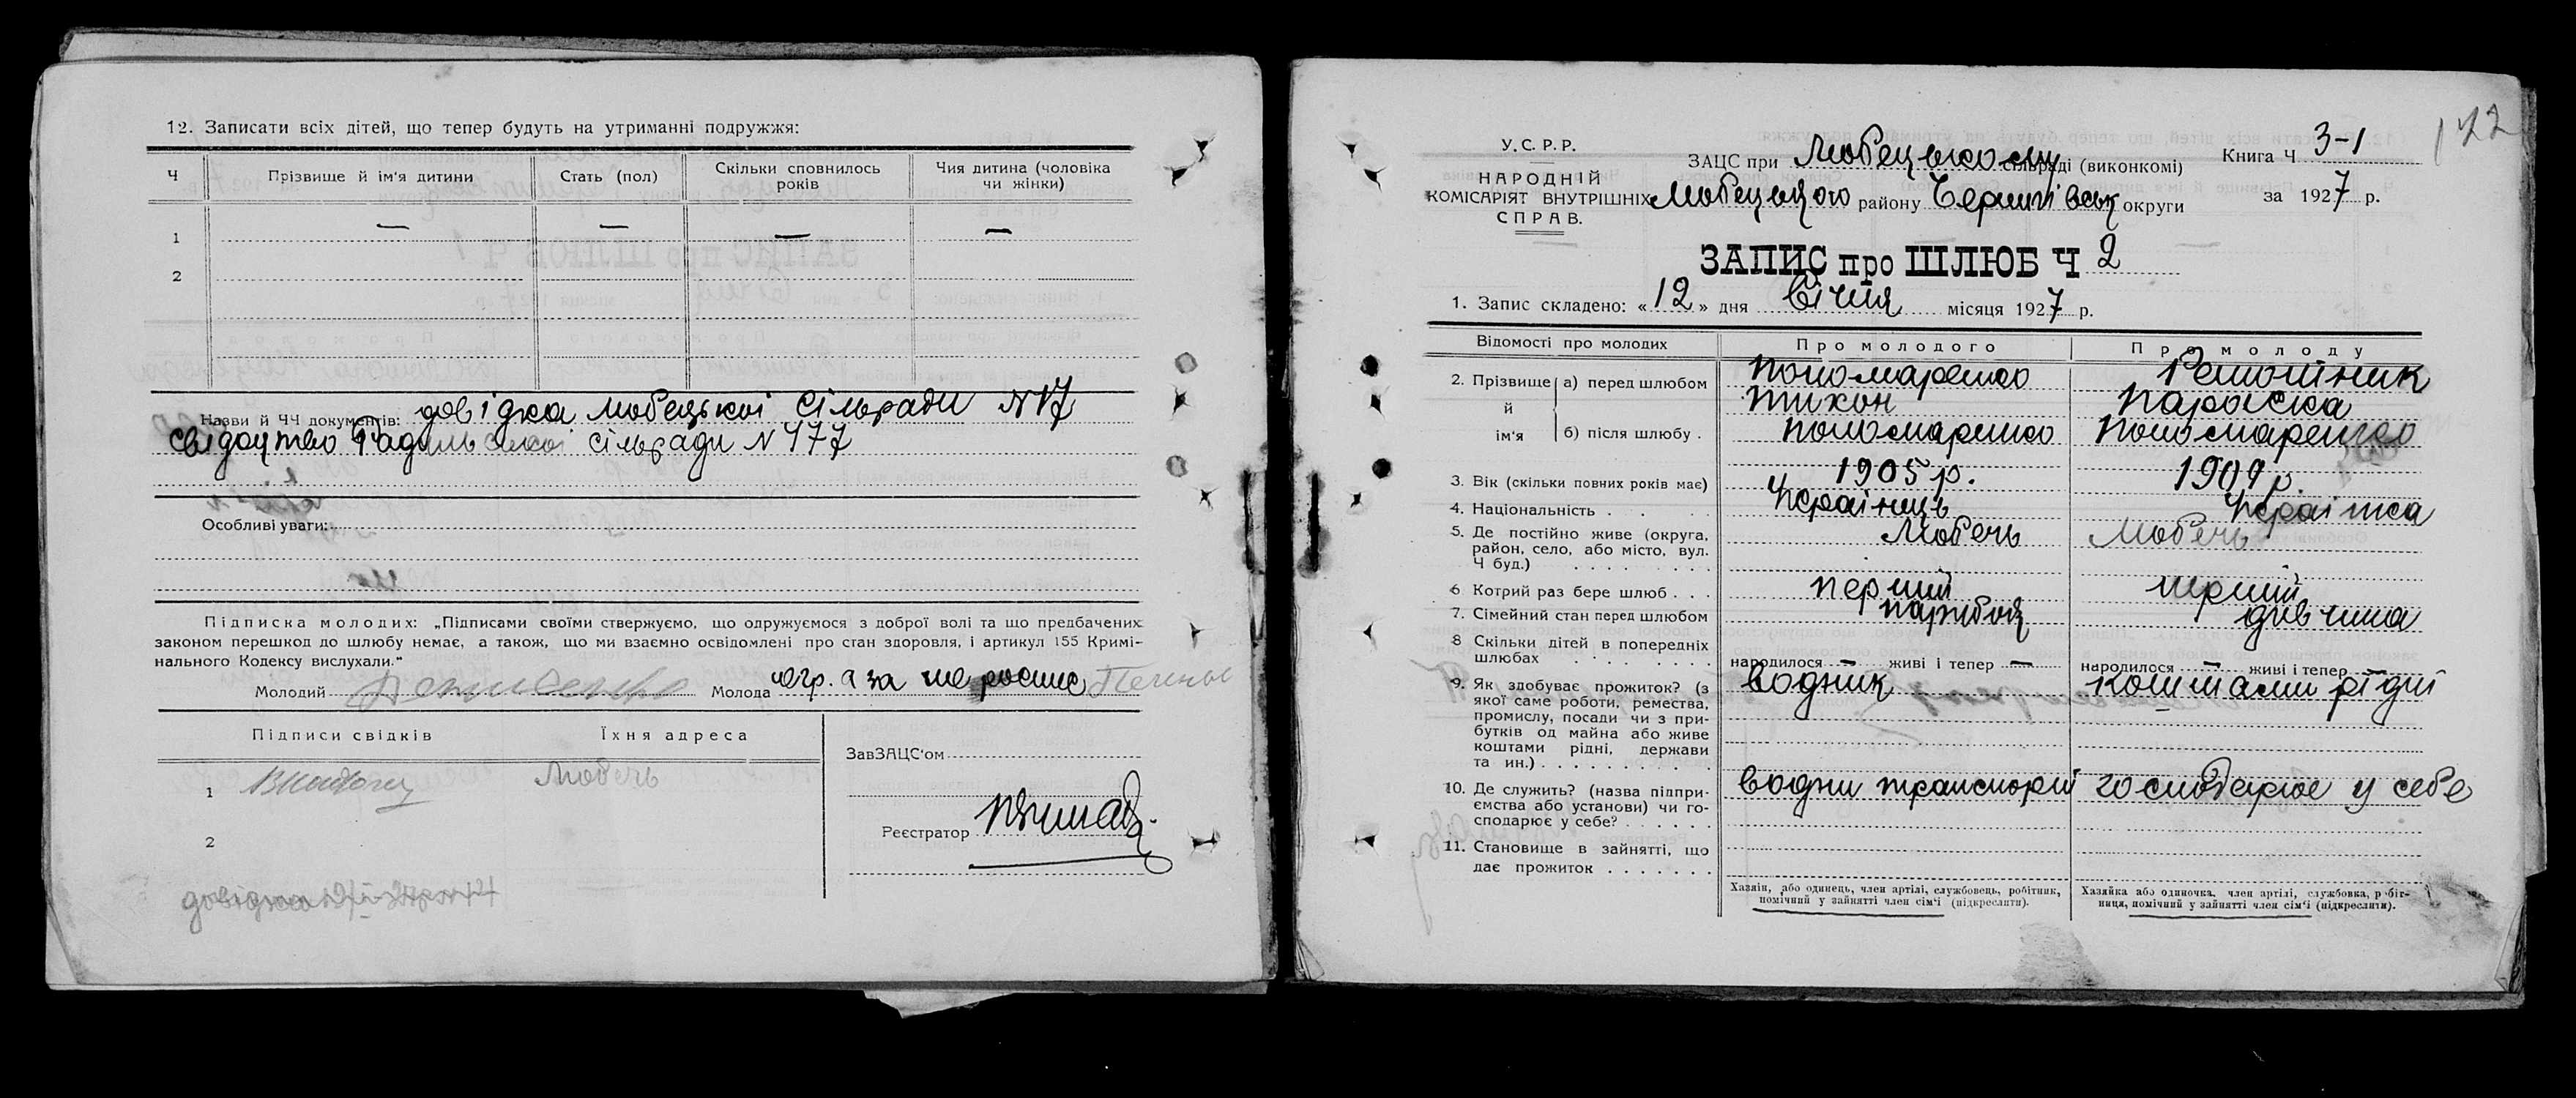 12. Записати всіх дітей, що тепер будуть на утриманні подружжя:
Ч Прізвище й ім'я дитини Стать (пол) Скільки сповнилось років Чия дитина (чоловіка чи жінки)
1 — — — —
2
Назви й ЧЧ документів: довідка Любецької сільради N 17
свідоцтво сільради N 477
Особливі уваги:
Підписка молодих: „Підписами своїми стверджуємо, що одружуємося з доброї волі та що предбачених
законом перешкод до шлюбу немає, а також, що ми взаємно освідомлені про стан здоровля, і артикул 155 Кримі-
нального Кодексу вислухали."
Молодий Молода негр. а за неї
Підписи свідків Їхня адреса
ЗавЗАЦС'ом
1 Любеч
Реєстратор
2
довідка
У.С.Р.Р.
НАРОДНІЙ
КОМІСАРІЯТ ВНУТРІШНІХ
СПРАВ.
ЗАЦС при Любецькому сільраді (виконкомі)
Любецького району Чернигівськ округи
Книга Ч 3-1
за 1927 р.
142
ЗАПИС про ШЛЮБ Ч 2
1. Запис складено: «12» дня Січня місяця 1927 р.
Відомості про молодих Про молодого Про молоду
2. Прізвище й ім'я а) перед шлюбом Пономаренко Тихон Ремотник Параска
б) після шлюбу . Пономаренко Пономаренко
3. Вік (скільки повних років має) 1905 р. 1909 р.
4. Національність . . . Українець Українка
5. Де постійно живе (округа, Любеч Любечь
район, село, або місто, вул.
Ч буд.) . . . .
6 Котрий раз бере шлюб . . . перший перший
7. Сімейний стан перед шлюбом парубок дівчина
8 Скільки дітей в попередніх
шлюбах . . . . . народилося — живі і тепер — народилося — живі і тепер
9. Як здобуває прожиток? (з водник коштами рідні
якої саме роботи, ремества,
промислу, посади чи з при-
бутків од майна або живе
коштами рідні, держави
та ин.) . . . . . . . .
10. Де служить? (назва підпри- водни транспорт господарює у себе
ємства або установи) чи го-
сподарює у себе? . . . . . .
11. Становище в зайнятті, що
дає прожиток . . . . . . .
Хазяїн, або одинець, член артілі, службовець, робітник,
помічний у зайнятті член сім'ї (підкреслити).
Хазяйка або одиночка, член артілі, службовка, робіт-
ниця, помічний у зайнятті член сім'ї (підкреслити).